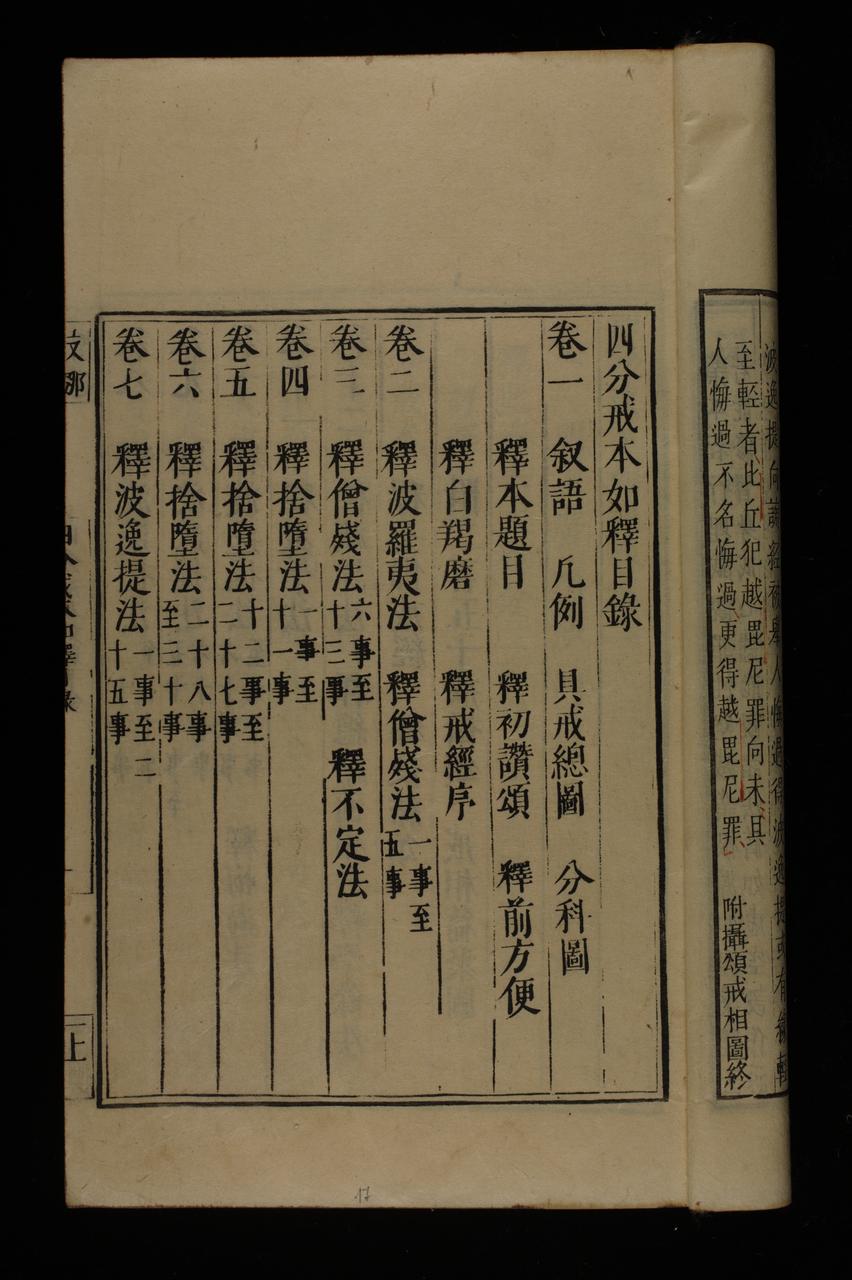 至輕者比丘犯越毘尼罪向未具
人悔過不名悔過更得越毘尼罪 附攝頌戒相圖終
四分戒本如釋目錄
卷一 叙語 凡例 具戒總圖 分科圖
釋本題目 釋初讚頌 釋前方便
釋白羯磨 釋戒經序
卷二 釋波羅夷法 釋僧殘法 一事至五事
卷三 釋僧殘法 六事至十三事 釋不定法
卷四 釋捨墮法 一事至十一事
卷五 釋捨墮法 十二事至二十七事
卷六 釋捨墮法 二十八事至三十事
卷七 釋波逸提法 一事至二十五事
上
17